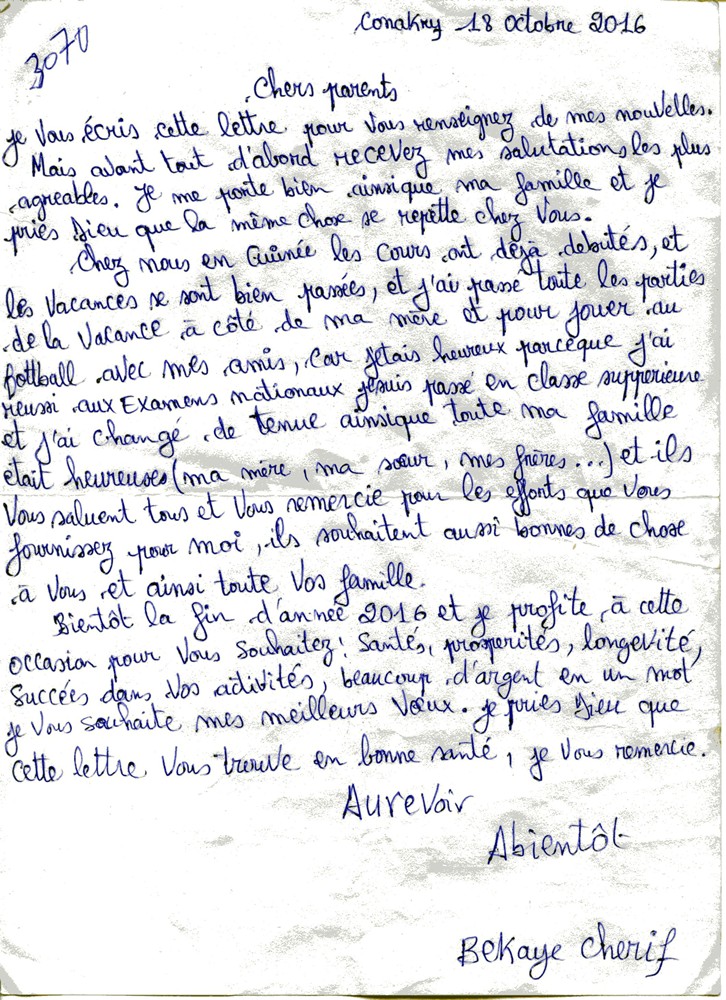 Conakry 18 octobre 2016
3070
Chers parents
je vous écris cette lettre pour vous renseignez de mes nouvelles.
Mais avant tout d'abord recevez mes salutations les plus
agreables. Je me porte bien ainsique ma famille et je
pries Dieu que la même chose se repette chez vous.
Chez nous en Guinée les cours ont dejà debutés, et
les vacances se sont bien passées, et j'ai passe toute les parties
de la vacance à côté de ma mère et pour jouer au
fottball avec mes amis, car jetais heureux parceque j'ai
reussi aux Examens nationaux jesuis passé en classe supperieure
et j'ai changé de tenue ainsique toute ma famille
était heureuses (ma mère, ma sœur, mes frères...) et ils
Vous saluent tous et Vous remercie pour les efforts que vous
fournissez pour moi, ils souhaitent aussi bonnes de chose
à vous et ainsi toute vos famille.
Bientôt la fin d'année 2016 et je profite à cette
occasion pour vous souhaitez! Santés, prosperités, longevité,
succées dans vos activités, beaucoup d'argent en un mot
je vous souhaite mes meilleurs vœux. je pries Dieu que
cette lettre vous trouve en bonne santé, je vous remercie.
Aurevoir
Abientôt
Bekaye cherif